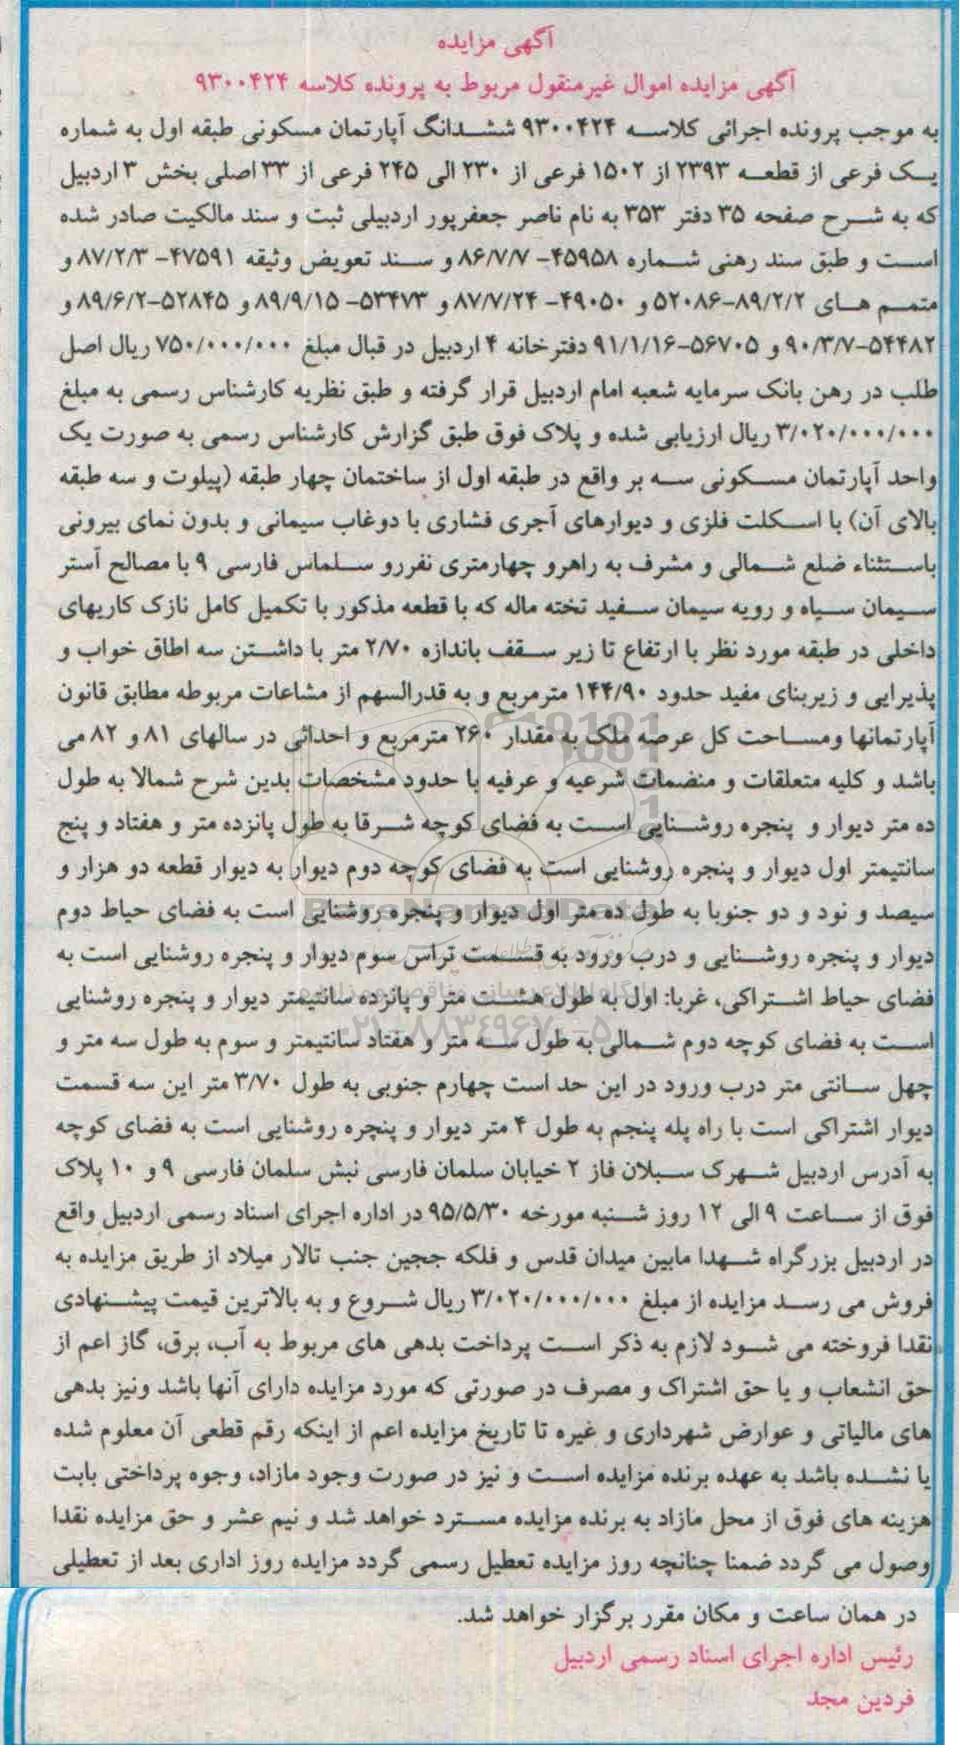 آگهی مزایده
آگهی مزایده اموال غیرمنقول مربوط به پرونده کلاسه ۹۳۰۰۴۲۴
به موجب پرونده اجرائی کلاسه ۹۳۰۰۴۲۴ ششدانگ آپارتمان مسکونی طبقه اول به شماره
یک فرعی از قطعه ۲۳۹۳ از ۱۵۰۲ فرعی از ۲۳۰ الی ۲۴۵ فرعی از ۳۳ اصلی بخش ۳ اردبیل
که به شرح صفحه ۳۵ دفتر ۳۵۳ به نام ناصر جعفرپور اردبیلی ثبت و سند مالکیت صادر شده
است و طبق سند رهنی شماره ۴۵۹۵۸- ۸۶/۷/۷ و سند تعویض وثیقه ۴۷۵۹۱- ۸۷/۲/۳ و
متمم های ۸۹/۲/۲-۵۲۰۸۶ و ۴۹۰۵۰- ۸۷/۷/۲۴ و ۵۳۴۷۳- ۸۹/۹/۱۵ و ۵۲۸۴۵-۸۹/۶/۲ و
۵۴۴۸۲-۹۰/۳/۷ و ۵۶۷۰۵-۹۱/۱/۱۶ دفترخانه ۴ اردبیل در قبال مبلغ ۷۵۰/۰۰۰/۰۰۰ ریال اصل
طلب در رهن بانک سرمایه شعبه امام اردبیل قرار گرفته و طبق نظریه کارشناس رسمی به مبلغ
۳/۰۲۰/۰۰۰/۰۰۰ ریال ارزیابی شده و پلاک فوق طبق گزارش کارشناس رسمی به صورت یک
واحد آپارتمان مسکونی سه بر واقع در طبقه اول از ساختمان چهار طبقه (پیلوت و سه طبقه
بالای آن) با اسکلت فلزی و دیوارهای آجری فشاری با دوغاب سیمانی و بدون نمای بیرونی
باستثناء ضلع شمالی و مشرف به راهرو چهارمتری نفررو سلماس فارسی ۹ با مصالح آستر
سیمان سیاه و رویه سیمان سفید تخته ماله که با قطعه مذکور با تکمیل کامل نازک کاریهای
داخلی در طبقه مورد نظر با ارتفاع تا زیر سقف باندازه ۲/۷۰ متر با داشتن سه اطاق خواب و
پذیرایی و زیربنای مفید حدود ۱۴۴/۹۰ مترمربع و به قدرالسهم از مشاعات مربوطه مطابق قانون
آپارتمانها ومساحت کل عرصه ملک به مقدار ۲۶۰ مترمربع و احداثی در سالهای ۸۱ و ۸۲ می
باشد و کلیه متعلقات و منضمات شرعیه و عرفیه با حدود مشخصات بدین شرح شمالا به طول
ده متر دیوار و پنجره روشنایی است به فضای کوچه شرقا به طول پانزده متر و هفتاد و پنج
سانتیمتر اول دیوار و پنجره روشنایی است به فضای کوچه دوم دیوار به دیوار قطعه دو هزار و
سیصد و نود و دو جنوبا به طول ده متر اول دیوار و پنجره روشنایی است به فضای حیاط دوم
دیوار و پنجره روشنایی و درب ورود به قسمت تراس سوم دیوار و پنجره روشنایی است به
فضای حیاط اشتراکی، غربا: اول به طول هشت متر و پانزده سانتیمتر دیوار و پنجره روشنایی
است به فضای کوچه دوم شمالی به طول سه متر و هفتاد سانتیمتر و سوم به طول سه متر و
چهل سانتی متر درب ورود در این حد است چهارم جنوبی به طول ۳/۷۰ متر این سه قسمت
دیوار اشتراکی است با راه پله پنجم به طول ۴ متر دیوار و پنجره روشنایی است به فضای کوچه
به آدرس اردبیل شهرک سبلان فاز ۲ خیابان سلمان فارسی نبش سلمان فارسی ۹ و ۱۰ پلاک
فوق از ساعت ۹ الی ۱۲ روز شنبه مورخه ۹۵/۵/۳۰ در اداره اجرای اسناد رسمی اردبیل واقع
در اردبیل بزرگراه شهدا مابین میدان قدس و فلکه ججین جنب تالار میلاد از طریق مزایده به
فروش می رسد مزایده از مبلغ ۳/۰۲۰/۰۰۰/۰۰۰ ریال شروع و به بالاترین قیمت پیشنهادی
نقدا فروخته می شود لازم به ذکر است پرداخت بدهی های مربوط به آب، برق، گاز اعم از
حق انشعاب و یا حق اشتراک و مصرف در صورتی که مورد مزایده دارای آنها باشد ونیز بدهی
های مالیاتی و عوارض شهرداری و غیره تا تاریخ مزایده اعم از اینکه رقم قطعی آن معلوم شده
یا نشده باشد به عهده برنده مزایده است و نیز در صورت وجود مازاد، وجوه پرداختی بابت
هزینه های فوق از محل مازاد به برنده مزایده مسترد خواهد شد و نیم عشر و حق مزایده نقدا
وصول می گردد ضمنا چنانچه روز مزایده تعطیل رسمی گردد مزایده روز اداری بعد از تعطیلی
در همان ساعت و مکان مقرر برگزار خواهد شد.
رئیس اداره اجرای اسناد رسمی اردبیل
فردین مجد